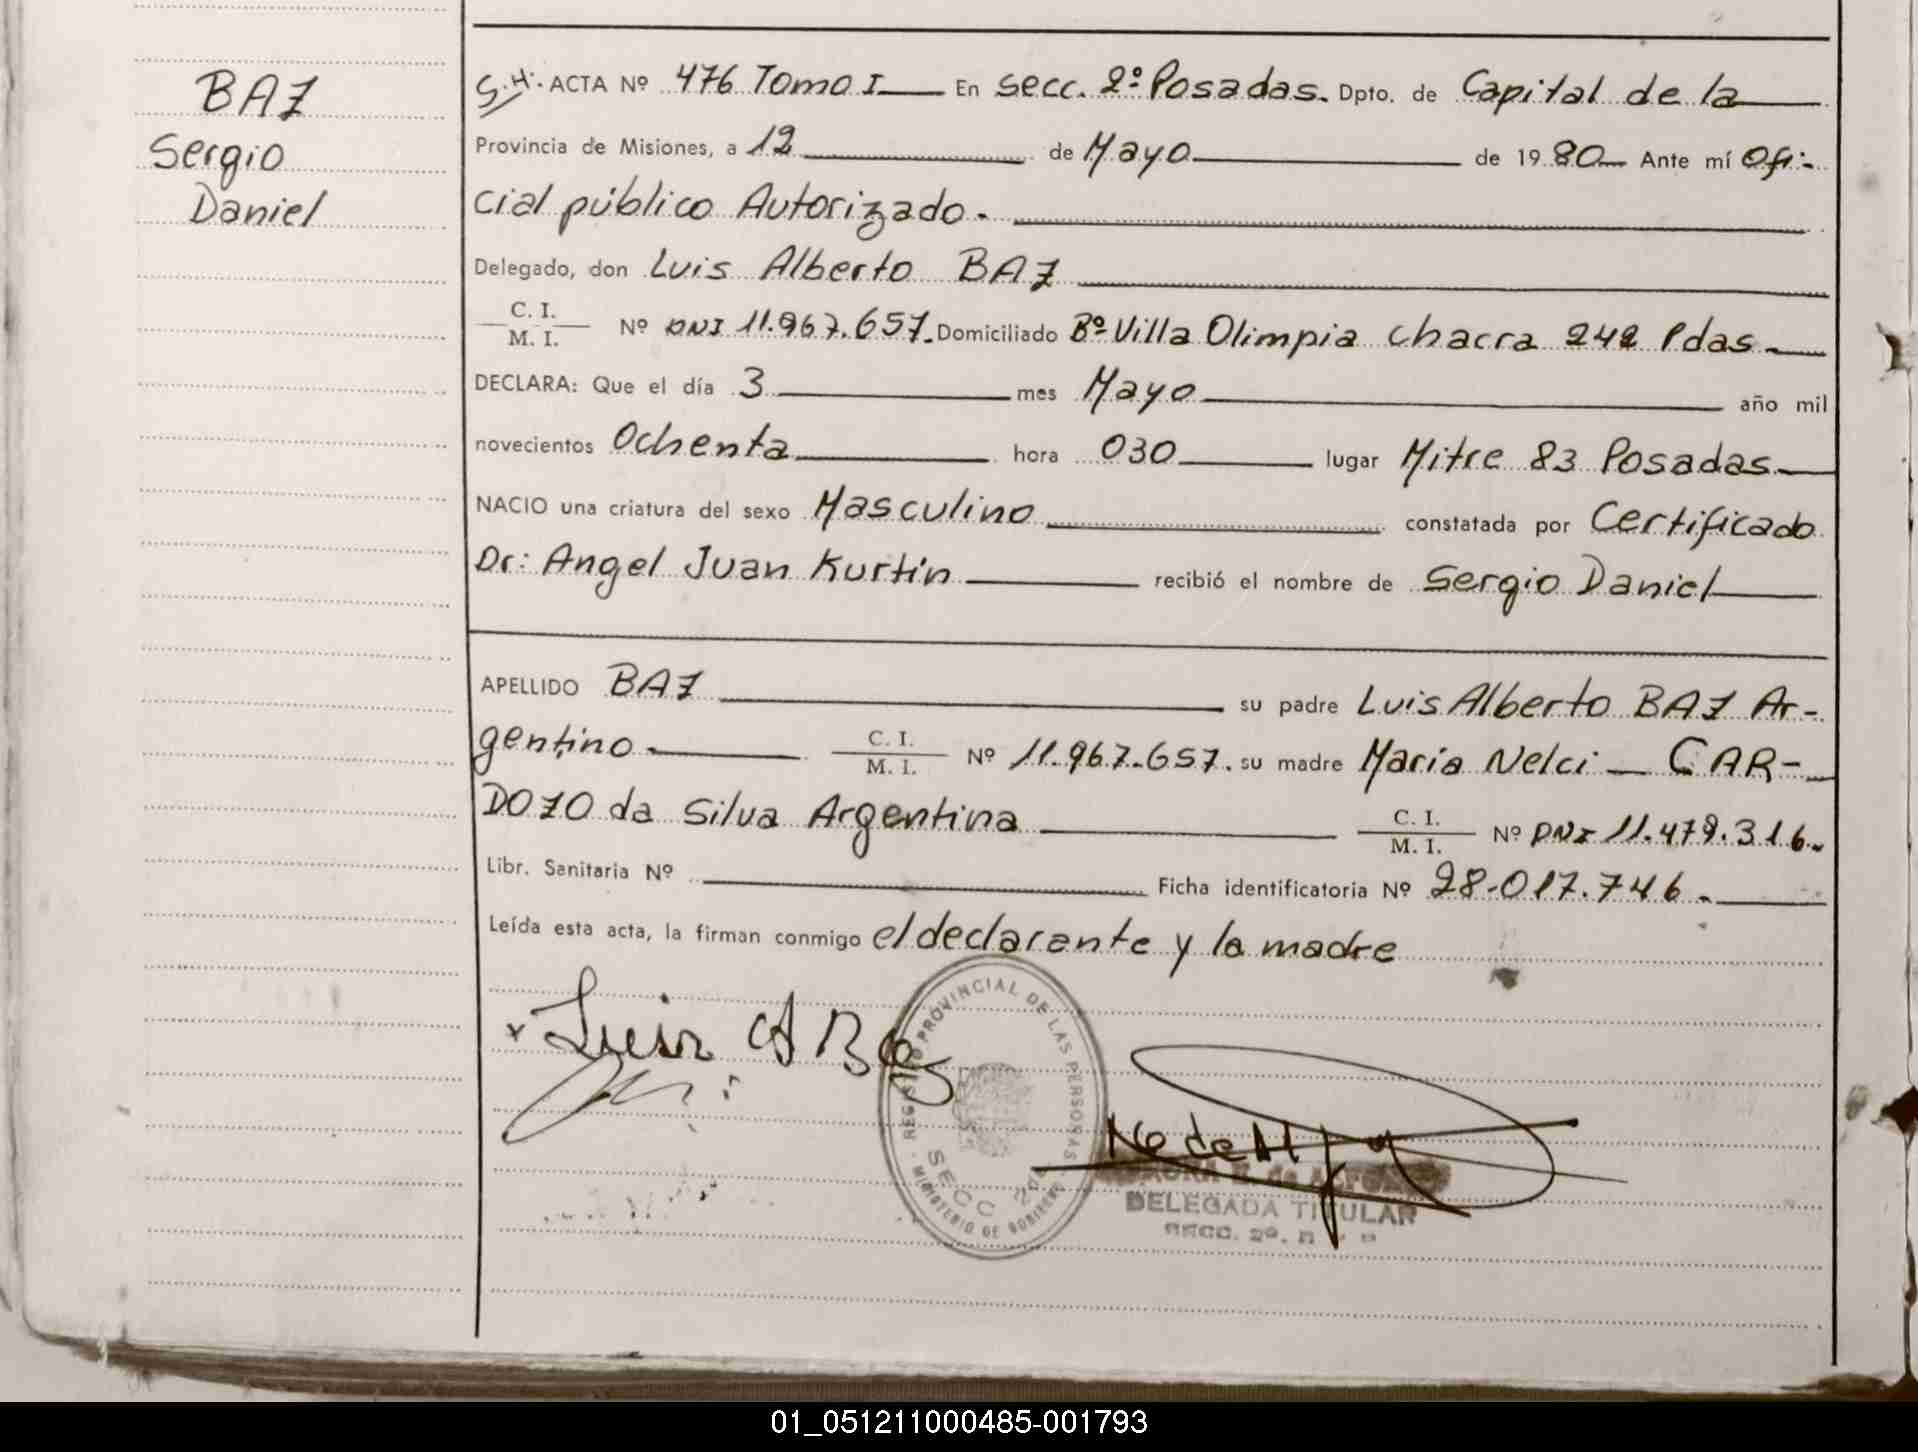 BAZ
Sergio
Daniel
S.H. ACTA Nº 476 Tomo I En secc. 2º Posadas. Dpto. de Capital de la
Provincia de Misiones, a 12 de Mayo de 1980 Ante mí Ofi-
cial público Autorizado.
Delegado, don Luis Alberto BAZ
C. I.
M. I. Nº DNI 11.967.657. Domiciliado Bº Villa Olimpia chacra 242 Pdas.
DECLARA: Que el día 3 mes Mayo año mil
novecientos Ochenta hora 030 lugar Mitre 83 Posadas
NACIO una criatura del sexo Masculino constatada por Certificado
Dr: Angel Juan Kurtin recibió el nombre de Sergio Daniel
APELLIDO BAZ su padre Luis Alberto BAZ Ar-
gentino C. I.
M. I. Nº 11.967.657. su madre Maria Nelci CAR-
DOZO da Silva Argentina C. I.
M. I. Nº DNI 11.479.316.
Libr. Sanitaria Nº Ficha identificatoria Nº 28.017.746.
Leída esta acta, la firman conmigo el declarante y la madre
Luis A Baz
REGISTRO PROVINCIAL DE LAS PERSONAS
SECC 2da
MINISTERIO DE GOBIERNO
DELEGADA TITULAR
SECC. 2º.
01_051211000485-001793